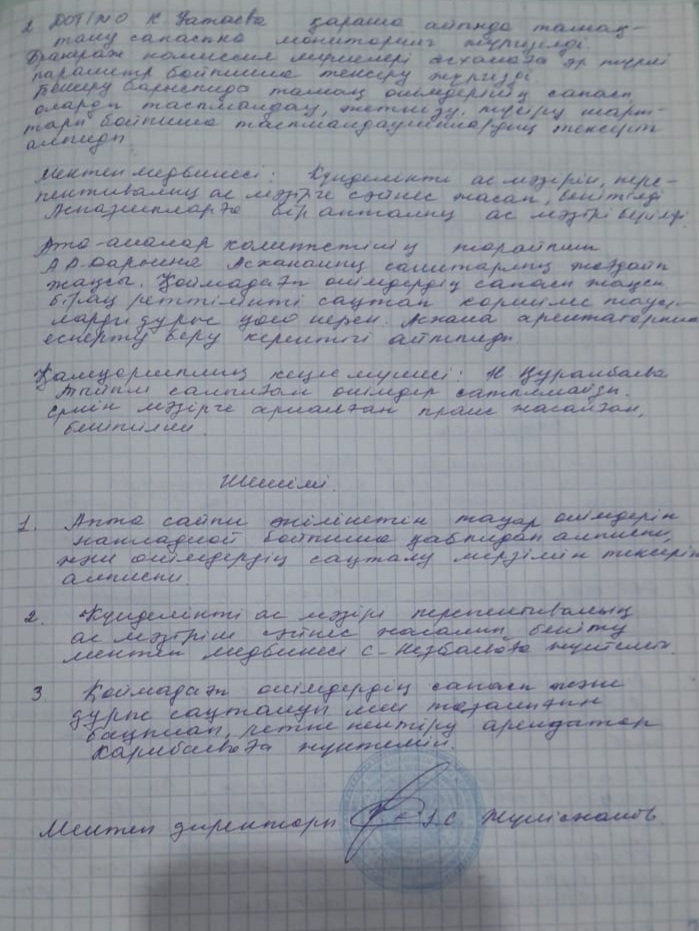 2 ДОІЖО К Ватаева қараша айында тамақ-
тану сапасына мониторинг жүргізілді.
Бракераж комиссия мүшелері асханаға әр түрлі
параметр бойынша тексеру жүргізді
Бекеру барысында тамақ өнімдерінің сапасы
оларды тасымалдау, жеткізу, түсіру шарт-
тары бойынша тасымалдаушылардың тексеріп
алынды
Мектеп медбикесі: Күнделікті ас мәзірін, перс-
пективалық ас мәзірге сәйкес жасап, бекітілді
Аспазшыларға бір апталық ас мәзірі берілді.
Ата-аналар комитетінің төрайымы
А А Дарьина Асхананың санитарлық жағдайы
жақсы. Қоймадағы өнімдердің сапасы жақсы
бірақ реттілікті сақтап көршілес тауар-
ларды дұрыс қою керек. Асхана арендаторына
ескерту беру керектігі айтылды
Қамқоршылық кеңес мүшесі: Н Құрамбаева
Тыйым салынған өнімдер сатылмайды.
Еркін мәзірге арналған прайс жасалған,
бекітілген
Шешімі.
1. Апта сайын әкелінетін тауар өнімдерін
накладной бойынша қабылдап алынсын,
және өнімдердің сақталу мерзімін тексеріп
алынсын.
2. Күнделікті ас мәзірі перспективалық
ас мәзіріне сәйкес жасалып, бекіту
мектеп медбикесі С-Назбаеваға жүктелсін.
3 Қоймадағы өнімдердің сапасы және
дұрыс сақталуы мен тазалығын
бақылап, ретке келтіру арендатор
Карибаеваға жүктелсін.
Мектеп директоры С Жүнісханов